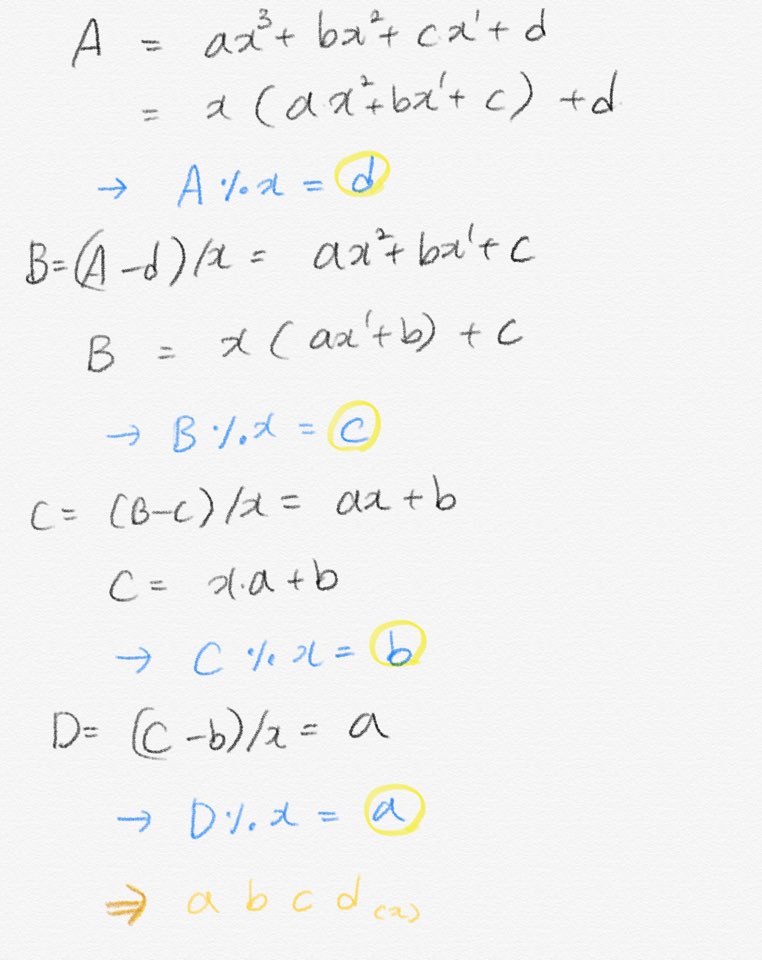 A = ax³ + bx² + cx¹ + d
= x (ax² + bx¹ + c) + d
→ A % x = d
B = (A - d) / x = ax² + bx¹ + c
B = x (ax¹ + b) + c
→ B % x = c
C = (B - c) / x = ax + b
C = x · a + b
→ C % x = b
D = (C - b) / x = a
→ D % x = a
⇒ a b c d (x)